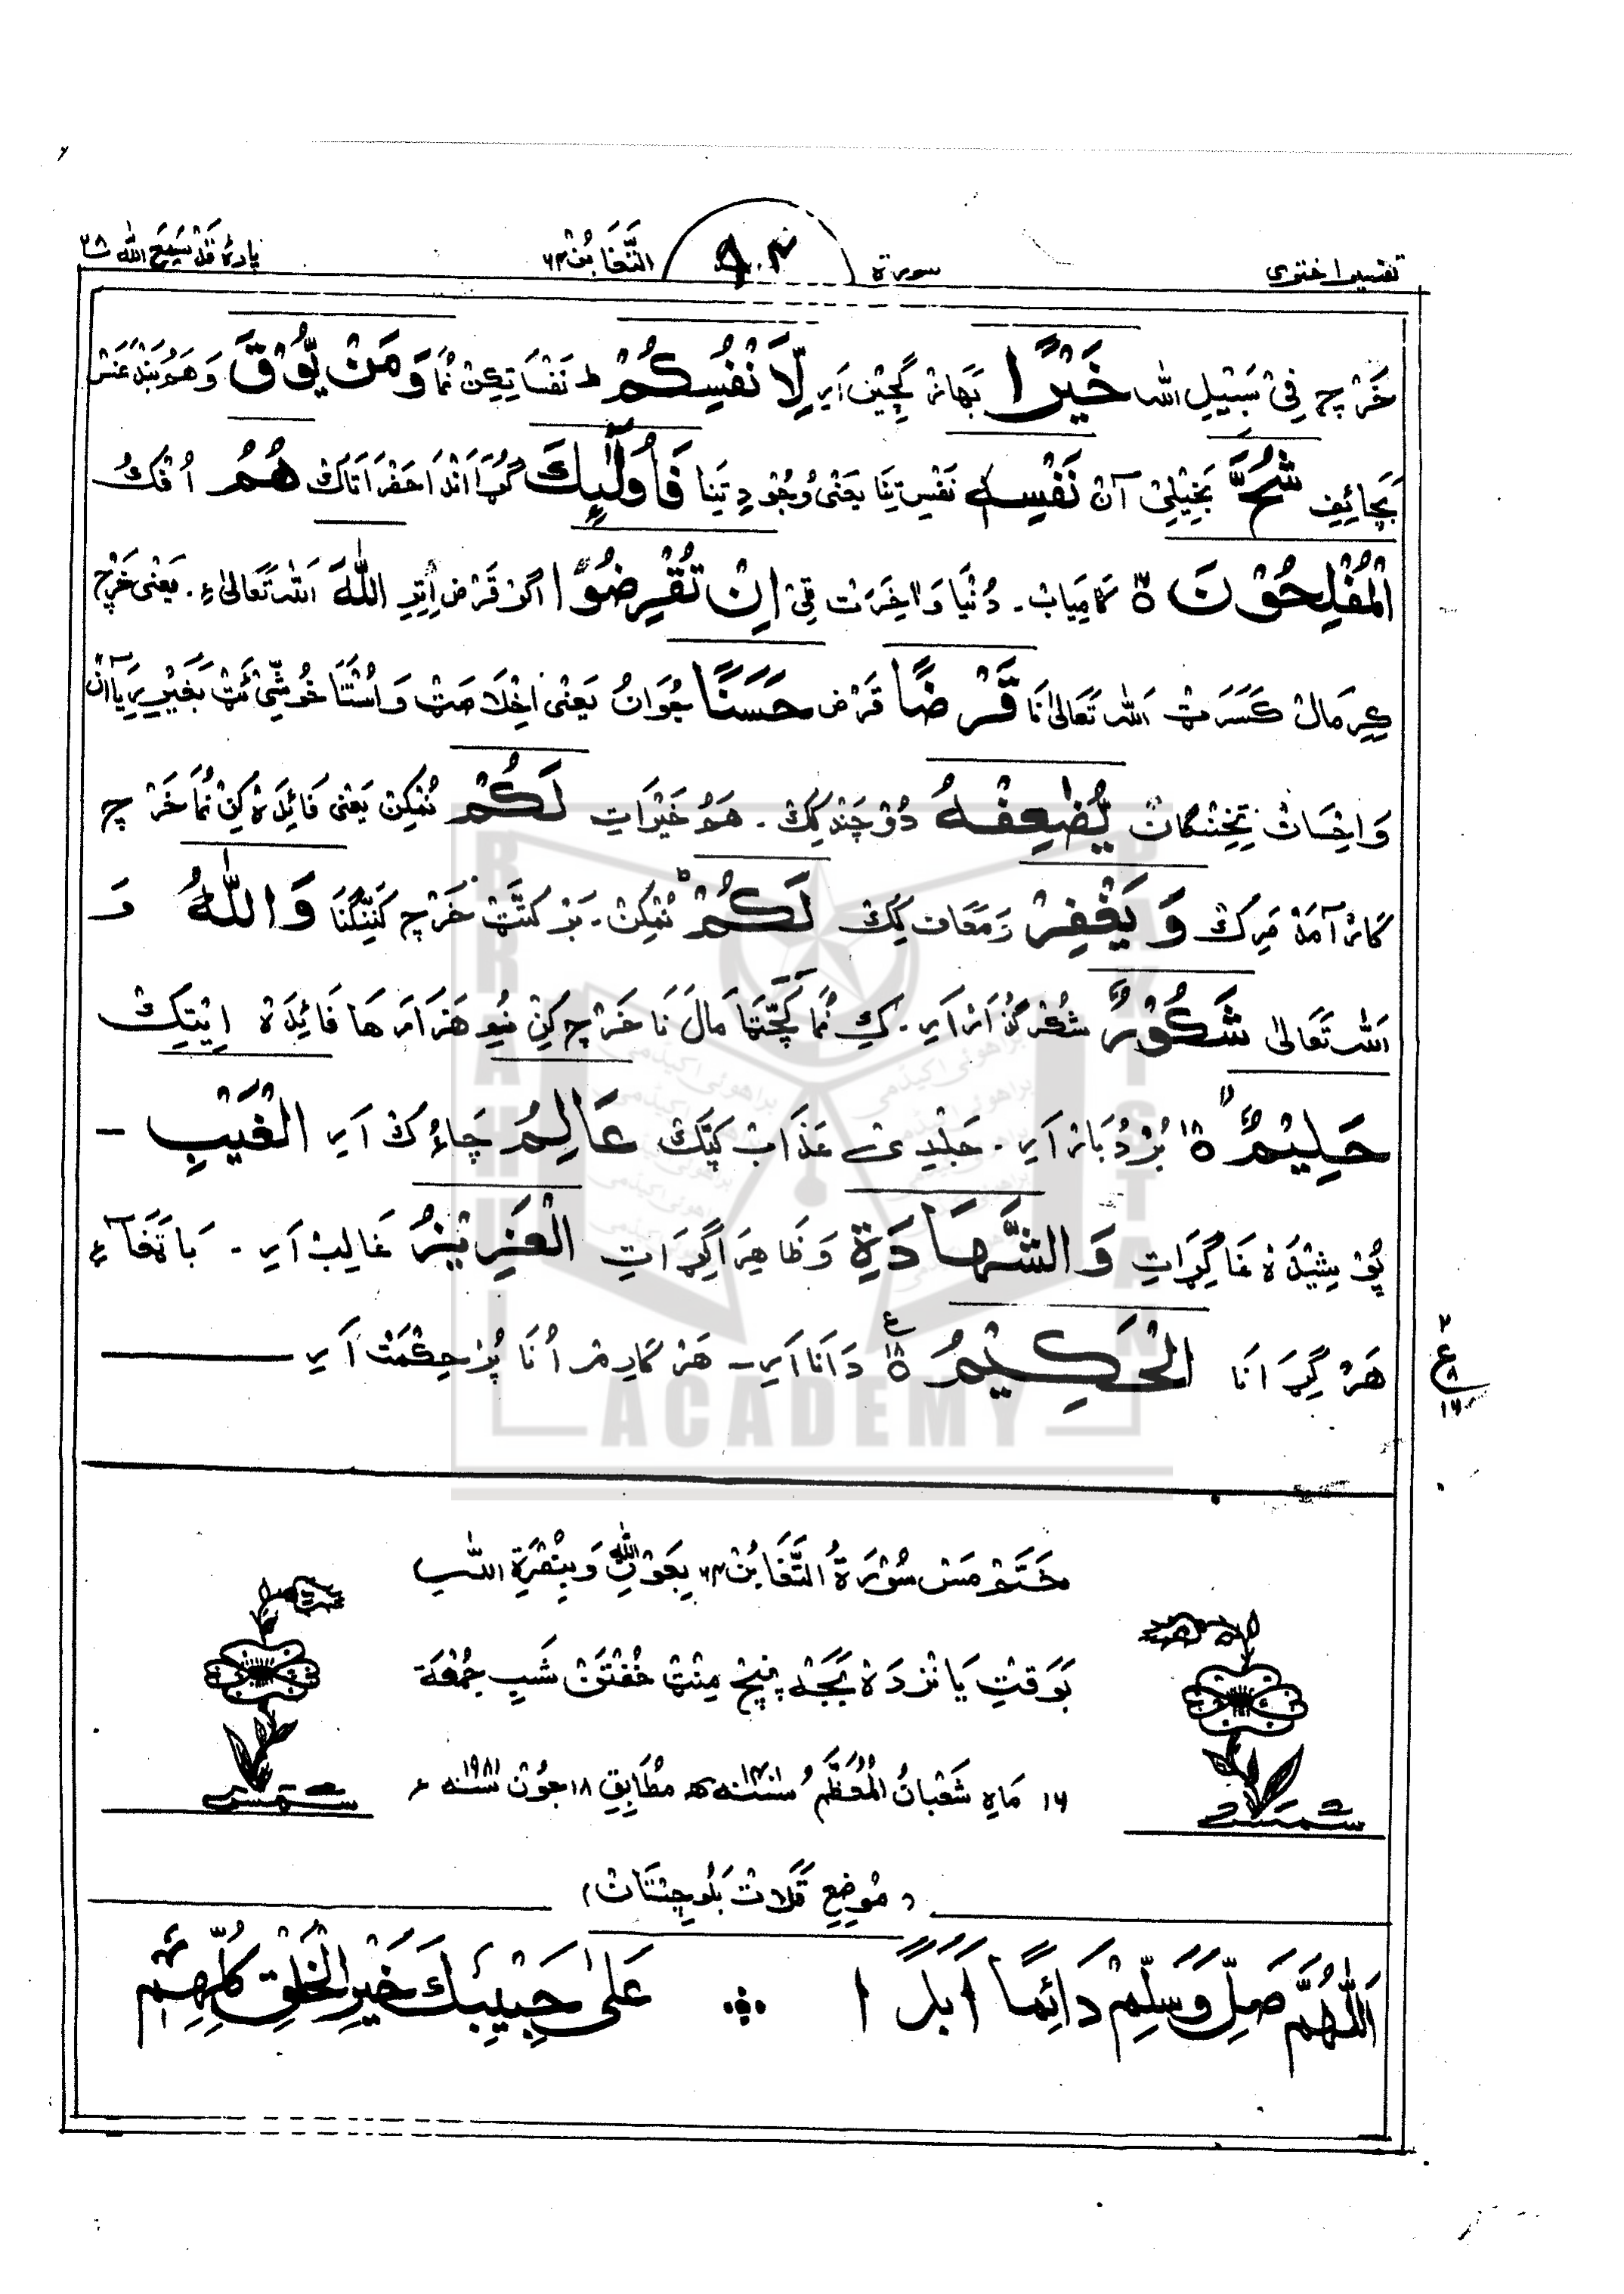 تفسیر اختری
سورة
٩٠٢
التَّغَابُنْ ٦٤
پارۀ قَدْ سَمِعَ اللّٰه ٢٨
خَرْچ فِیْ سَبِیْلِ الله خَیْرًا بَھَازْ گِچِیْن اَیر لِّاَنْفُسِكُمْ ط نَفْسَاتِکِنْ نُمَا وَمَنْ یُّوْقَ وَهَمُوبَنْدَغَس
بَچائِفِ شُحَّ بَخِیْلِیْ آن نَفْسِهٖ نَفْسِ تِنَا یعنی وُجُودِ تِنَا فَاُولٰٓئِكَ گُڑَا اَنْدَاحَفْرَاتَاك هُمُ اُفْكُ
الْمُفْلِحُوْنَ ٥ کَامِیَابْ - دُنْیَا وَ اٰخِرَت ٹِیْ اِنْ تُقْرِضُوا اَگَرْ قَرْض اِتِرِ اللّٰهَ اَللّٰه تَعَالیٰ ءِ . یَعْنِیْ خَرْچ
کِرِ مَالْ کَسَرَٹ اَللّٰه تَعَالیٰ نَا قَرْضًا قَرْض حَسَنًا جُوَانُ یَعْنِیْ اِخْلَاصَٹ وَ اُسْتَنَا خُوشِیْ ئَٹ بَغَیْرِ رِیَا آنْ
وَاِحْسَانْ تِخِنْگَان یُّضٰعِفْهُ دُوْچَنْد کِك . هَمُو خَیْرَاتِ لَكُمْ نُمْکِنْ یَعْنِیْ فَائِدَہ کِنْ نُمَا خَرْچ
کَارْآمَدْ مَرِك وَیَغْفِرْ وَمَعَاف کِك لَكُمْ نُمْکِنْ - بَرْکَتَّٹ خَرْچ کَنِّنْگَنَا وَاللّٰهُ وَ
اَللّٰه تَعَالیٰ شَكُوْرٌ شُکْر گُذَارْ اَیر . کِ نُمَا گَچَّٹَا مَالَ نَا خَرْچ کِنْ نُمِ هَزَارَهَا فَائِدَہ اِیْتِك
حَلِیْمٌ ٥ بُرْدُبَارْ اَیر - جَلْدِیْ ئے عَذَابْ کَپَّك عَالِمُ چَاءُك اَیر الْغَیْبِ -
پُوْشِیْدَہ غَاگِڑَاتِ وَالشَّهَادَةِ وَظَاهِرَاگِڑَاتِ الْعَزِیْزُ غَالِبْ اَیر - بَاتَخَآءِ
هَرْ گِڑَانَا الْحَكِیْمُ ٥ دَانَا اَیر - هَرْ کَارِم اُنَا پُرْحِکْمَتْ اَیر
٢
ع
٨
١٦
خَتَمْ مَس سُوْرَةُ التَّغَابُنْ ٦٤ بِعَوْنِ اللّٰهِ وَبِنُصْرَةِ اللّٰهِ
بَوَقْتِ یَانْزدَہ بَجَہ پَنچ مِنْٹ خُفْتَنْ شَبِ جُمُعَة
١٦ مَاهِ شَعْبَانُ الْمُعَظَّمْ سنه ١٤٠١ھ مُطَابِقِ ١٨ جُوْن سنه ١٩٨١ء
( مُوضِعِ قَلَاتْ بَلُوچِسْتَان )
اَللّٰهُمَّ صَلِّ وَسَلِّمْ دَائِمًا اَبَدًا عَلیٰ حَبِیْبِكَ خَیْرِ الْخَلْقِ كُلِّهِمْ
BRAHUI
ACADEMY
PAKISTAN
براہوئی اکیڈمی